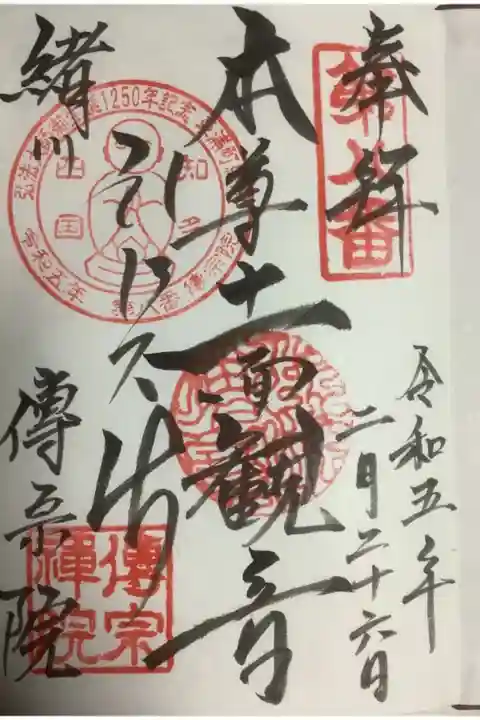 奉拝
第八番
令和五年
二月二十六日
本尊十一面観音
弘法大師
緒川
1250年記念
知多
四国
令和五年 第八番 傳宗院
傳宗院
傳宗
禅院